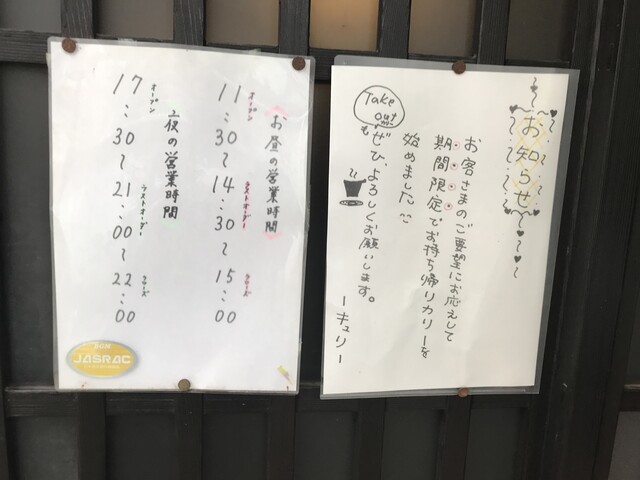 お知らせ
お客さまのご要望にお応えして
期間限定でお持ち帰りカリーを
始めました
Take out もぜひよろしくお願いします。
ーキュリー
お昼の営業時間
オープン ラストオーダー クローズ
11:30〜14:30〜15:00
夜の営業時間
オープン ラストオーダー クローズ
17:30〜21:00〜22:00
JASRAC